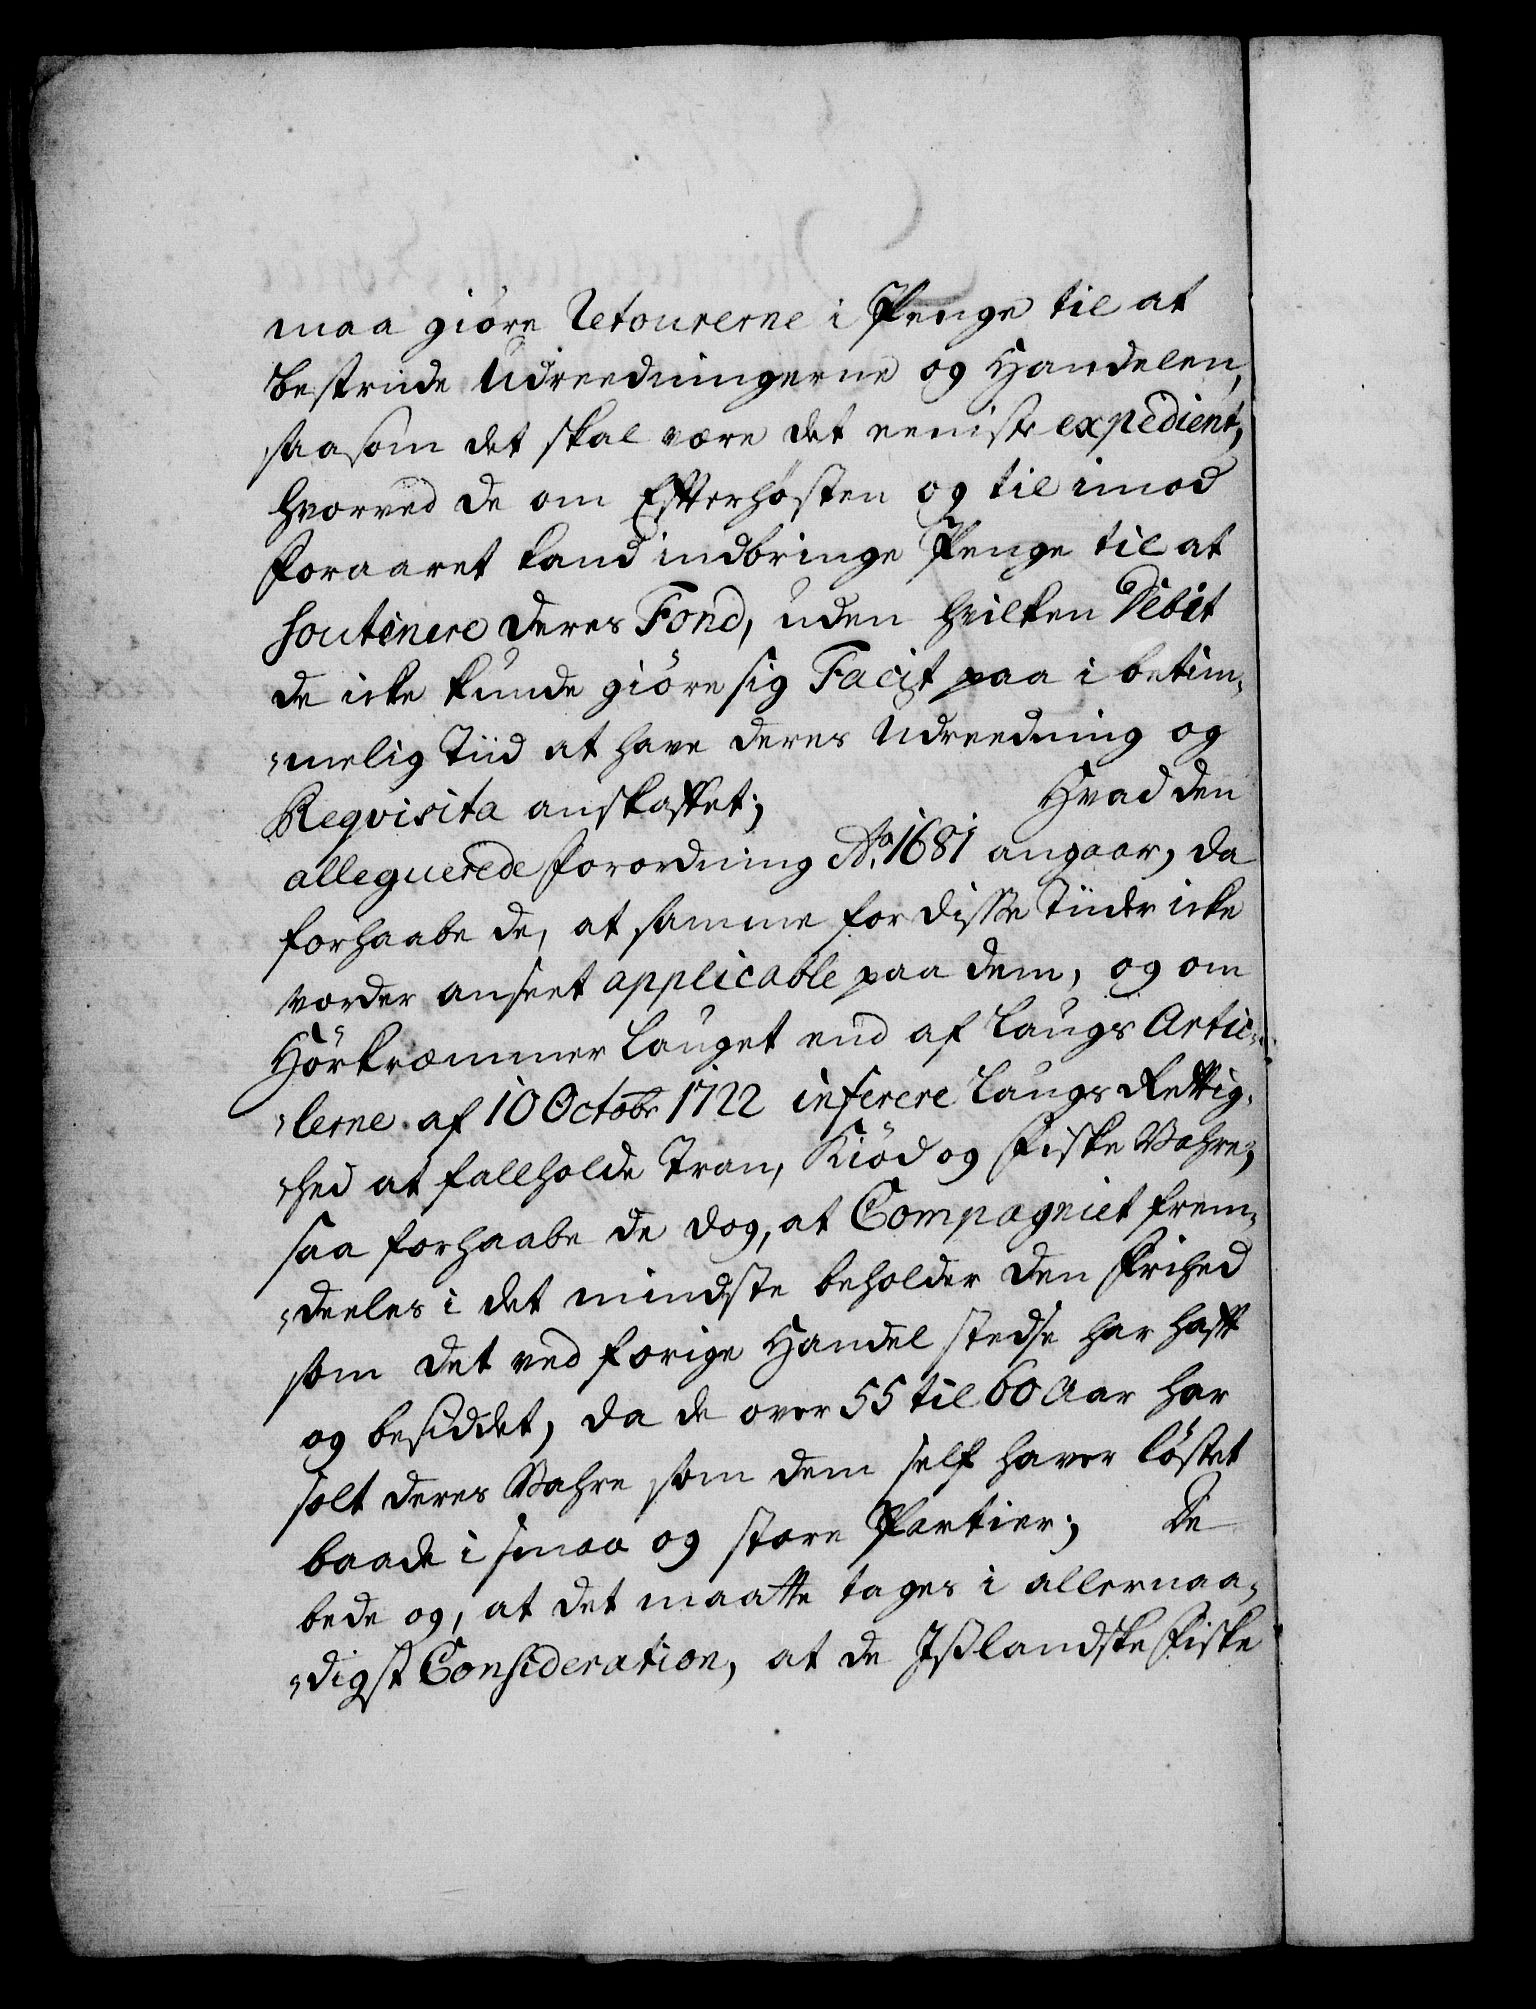 maa giöre Retourerne i Penge til at
bestride Udreedningerne og Handelen,
saasom det skal være det eeniste expedient,
hvorved de om Efterhösten og til imod
Foraaret kand indbringe Penge til at
soutinere deres Fond, uden hvilken Debit
de icke kunde giöre sig Facit paa i betim„
„melig Tiid at have deres Udreedning og
Reqvisita anskaffet; Hvad den
alleguerede Forordning Ao. 1681 angaar, da
forhaabe de, at samme for disse Tiider icke
vorder anseet applicable paa dem, og om
Hörkræmmer Lauget end af Laugs Artic„
„lerne af 10 Octobr 1722 inferere Laugs Rettig„
„hed at fallholde Tran, Kiöd og Fiske Vahre;
saa forhaabe de dog, at Compagniet frem„
„deeles i det mindste beholder den Frihed
som det ved forige Handel stedse har hafft
og besiddet, da de over 55 til 60 Aar har
solt deres Vahre som dem self haver löstet
baade i smaa og store Partier; De
bede og, at det maatte tages i allernaa„
„digst Consideration, at de Ißlandske Fiske